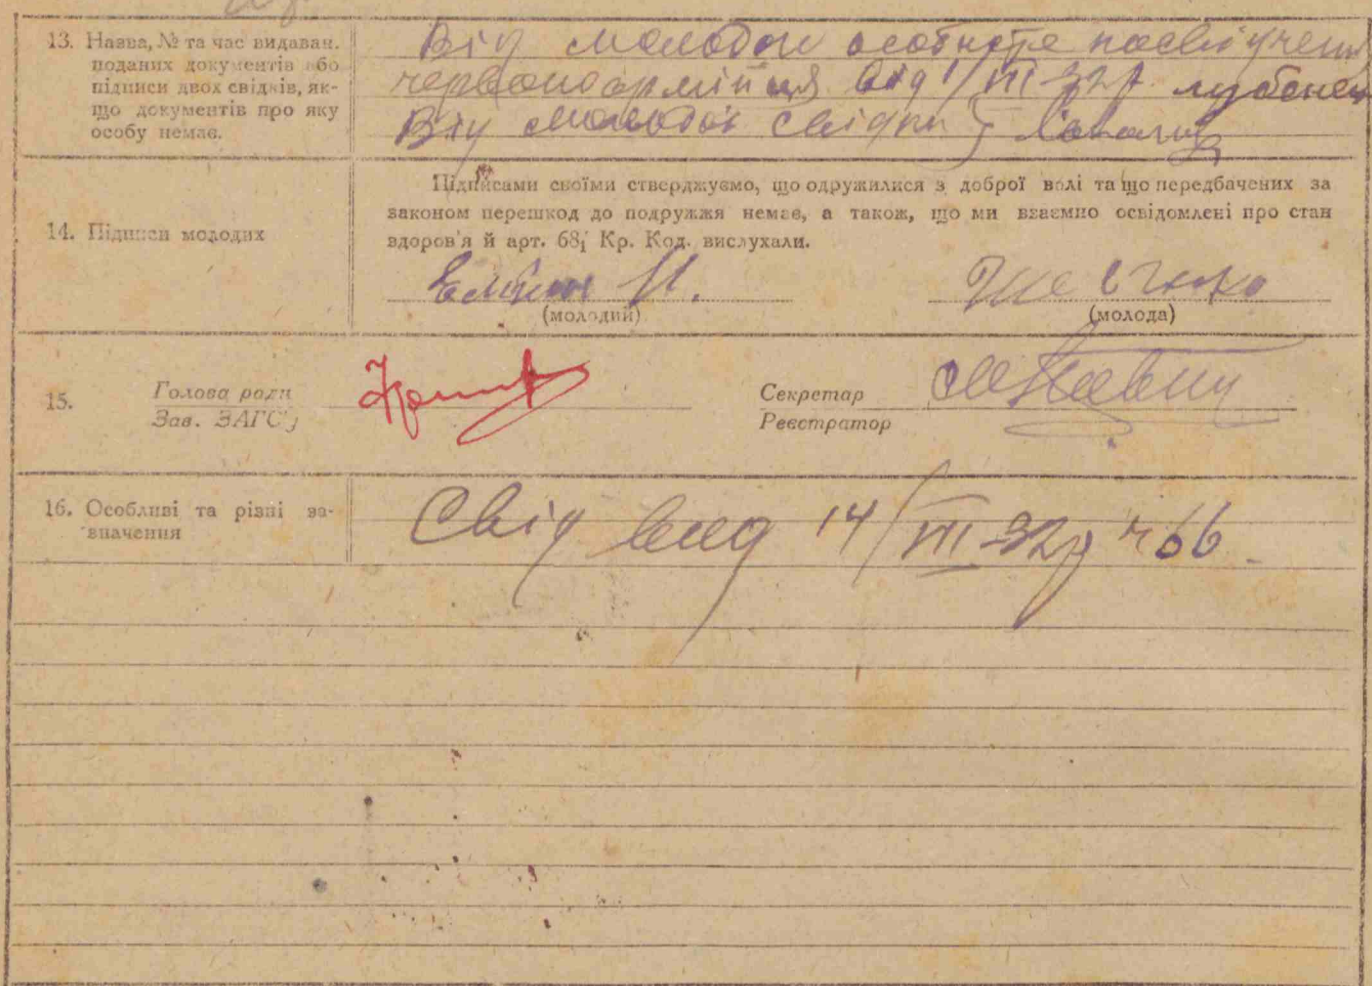 13. Назва, № та час видаван. поданих документів або підписи двох свідків, як-що документів про яку особу немає.
Від молодого особисте посвідчення
червоноармійця від 1/III-32р
Від молодої свідки }
14. Підписи молодих
Підписами своїми стверджуємо, що одружилися з доброї волі та що передбачених за
законом перешкод до подружжя немає, а також, що ми взаємно освідомлені про стан
здоров'я й арт. 68, Кр. Код. вислухали.
(молодий)
Шевченко
(молода)
15. Голова ради
Зав. ЗАГС'у
Секретар
Реєстратор
16. Особливі та різні за-
значення
Свід вид 14/III-32р ч 66